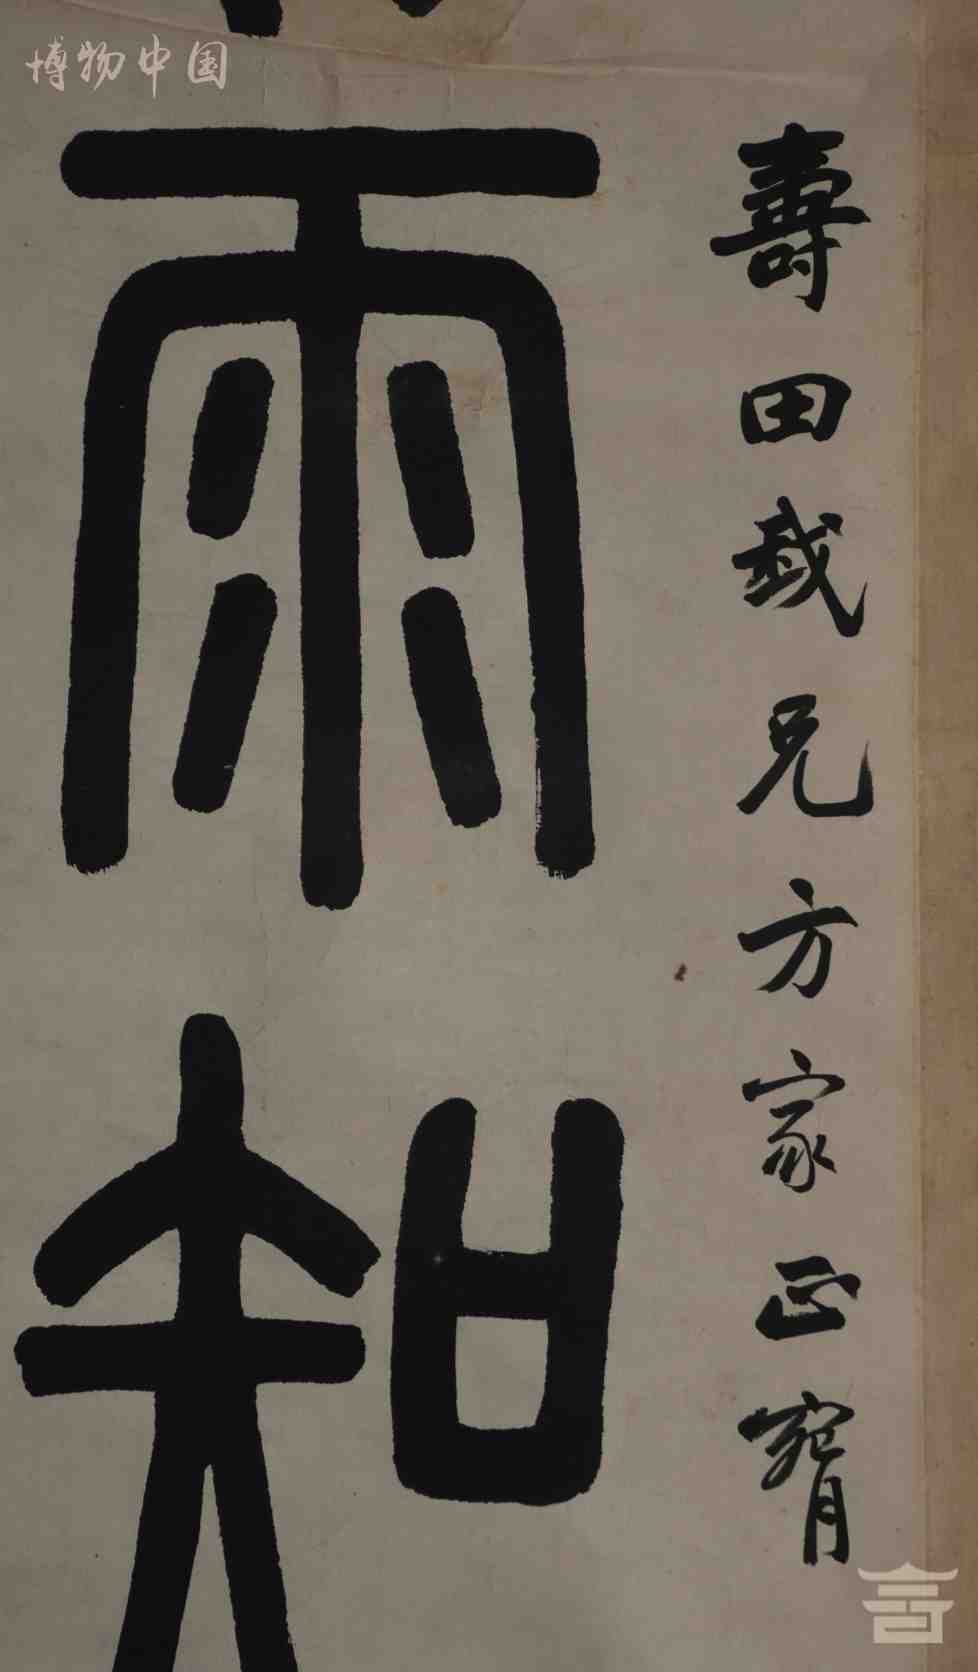 博物中国
壽田我兄方家正腕
雨知